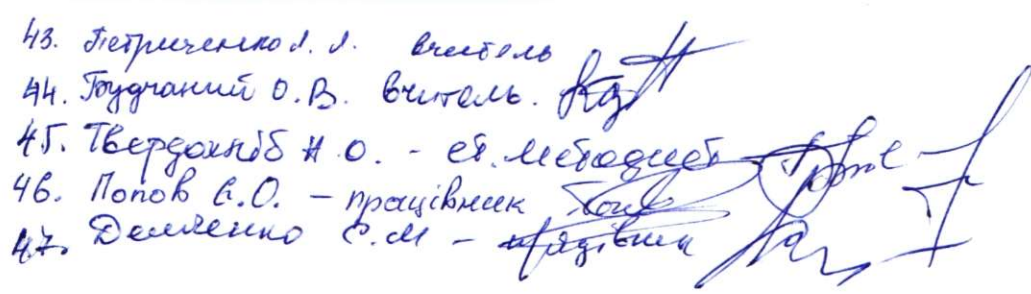 43. Петриченко Л. Л. вчитель
44. О.В. вчитель.
45. Твердохліб Н.О. - ст. методист
46. Попов Є.О. - працівник
47. Демченко С.М - працівник